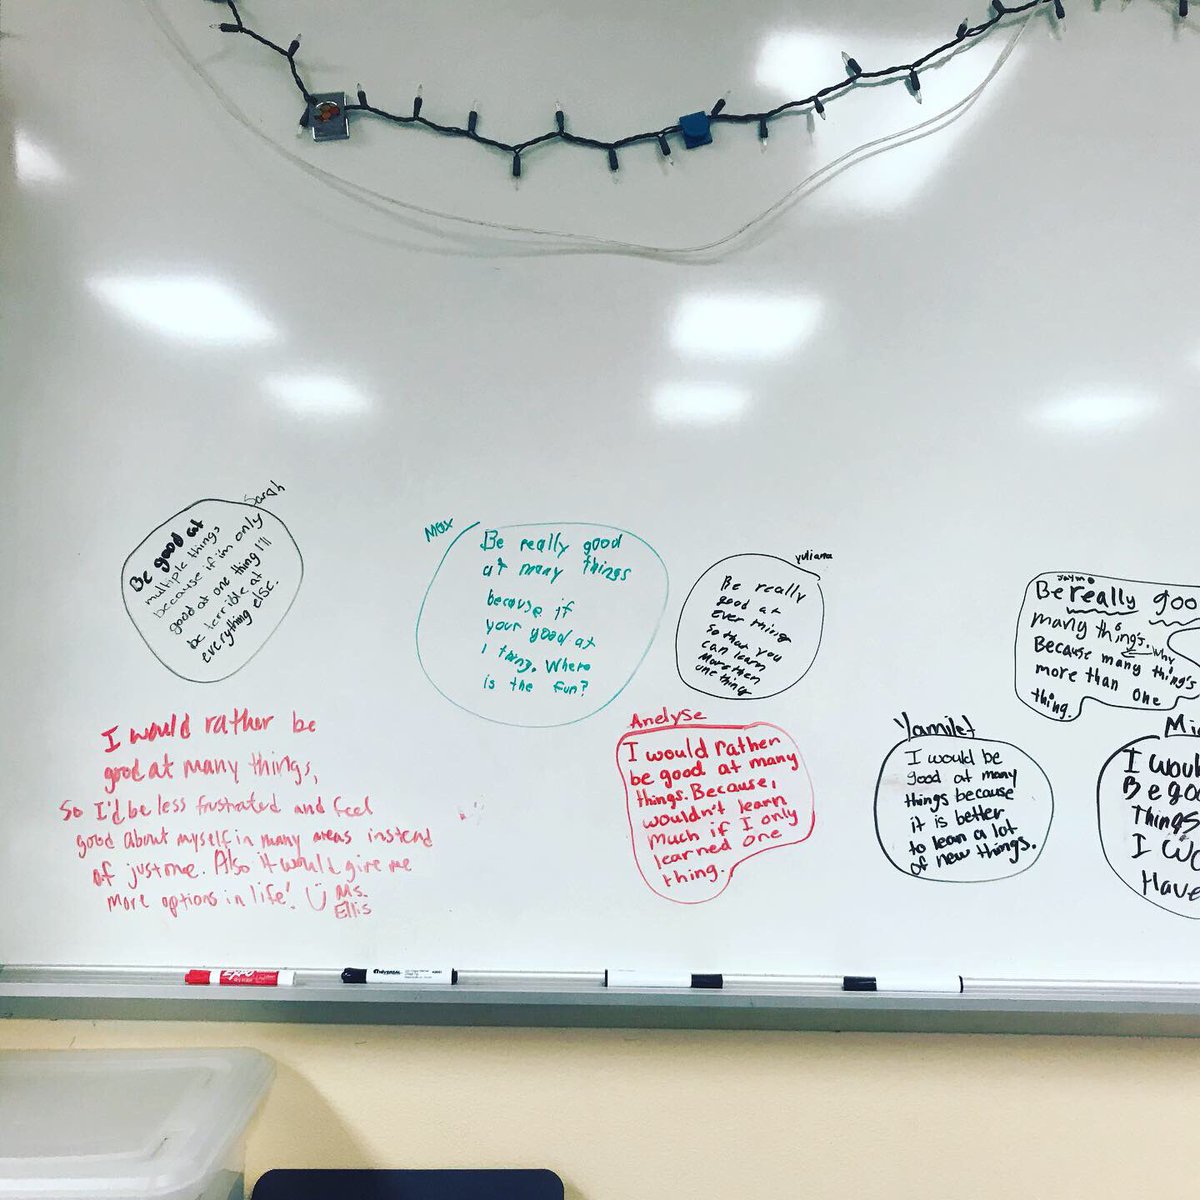 Sarah
Be good at
multiple things
because if im only
good at one thing I'll
be terrible at
everything else.
Max
Be really good
at many things
because if
your good at
1 thing. Where
is the fun?
yuliana
Be really
good at
ever thing
so that you
can learn
More then
one thing
Jaym
Be really goo
many thing's. Why
Because many thing's
more than one
thing.
I would rather be
good at many things,
So I'd be less frustrated and feel
good about myself in many areas instead
of just one. Also it would give me
more options in life! Ms.
Ellis
Anelyse
I would rather
be good at many
things. Because, I
wouldn't learn
Much if I only
learned one
thing.
Yamilet
I would be
good at many
things because
it is better
to learn a lot
of new things.
Mi
I woul
Be goo
Things
I wo
Have
EXPO
UNIVERSAL